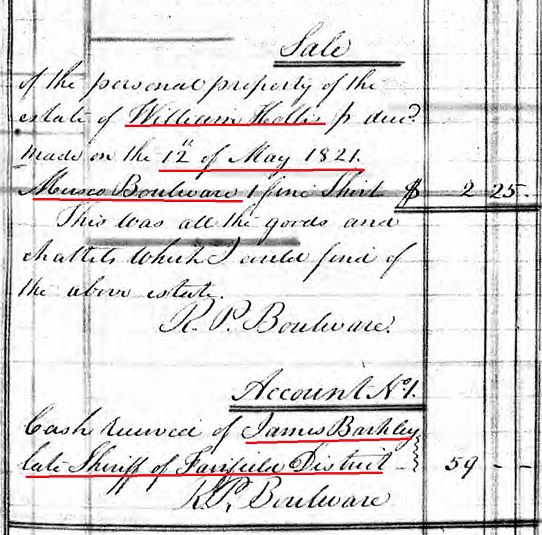 Sale
of the personal property of the
estate of William Hollis decd.
made on the 12th of May 1821.
Musco Boulware 1 fine Shirt $ 2 25 -
This was all the goods and
chattels which I could find of
the above estate.
R. P. Boulware.
Account No 1.
Cash received of James Barkley
late Sheriff of Fairfield District } 59 - -
R. P. Boulware